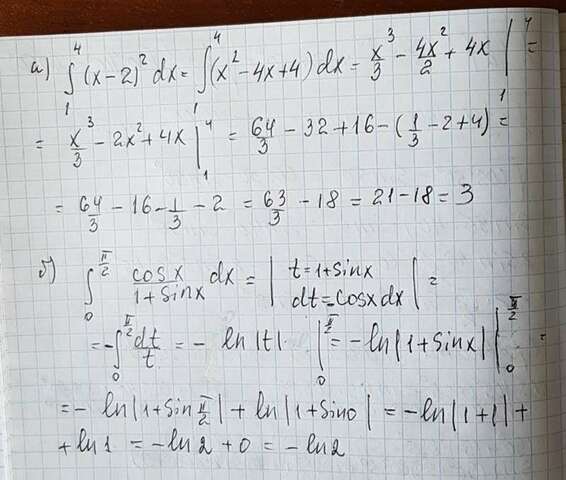 а) ∫₁⁴ (x-2)² dx = ∫₁⁴ (x² - 4x + 4) dx = x³/3 - 4x²/2 + 4x |₁⁴ =
= x³/3 - 2x² + 4x |₁⁴ = 64/3 - 32 + 16 - (1/3 - 2 + 4) =
= 64/3 - 16 - 1/3 - 2 = 63/3 - 18 = 21 - 18 = 3
б) ∫₀^(π/2) cosx/(1+sinx) dx = | t = 1 + sinx
dt = -cosx dx | =
= -∫₀^(π/2) dt/t = - ln|t| |₀^(π/2) = -ln|1+sinx| |₀^(π/2) =
= - ln|1+sin π/2| + ln|1+sin0| = -ln|1+1| +
+ ln1 = -ln2 + 0 = -ln2